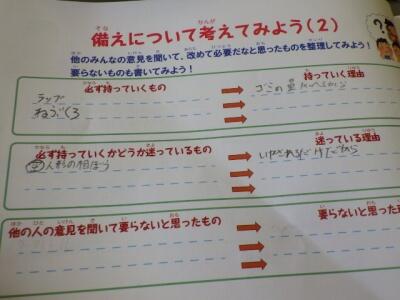 備えについて考えてみよう(2)
他のみんなの意見を聞いて、改めて必要だなと思ったものを整理してみよう!
要らないものも書いてみよう!
必ず持っていくもの
持っていく理由
ラップ
ゴミの量
ねぶくろ
必ず持っていくかどうか迷っているもの
迷っている理由
人形の相ぼう
いやされるだけだから
他の人の意見を聞いて要らないと思ったもの
要らないと思った